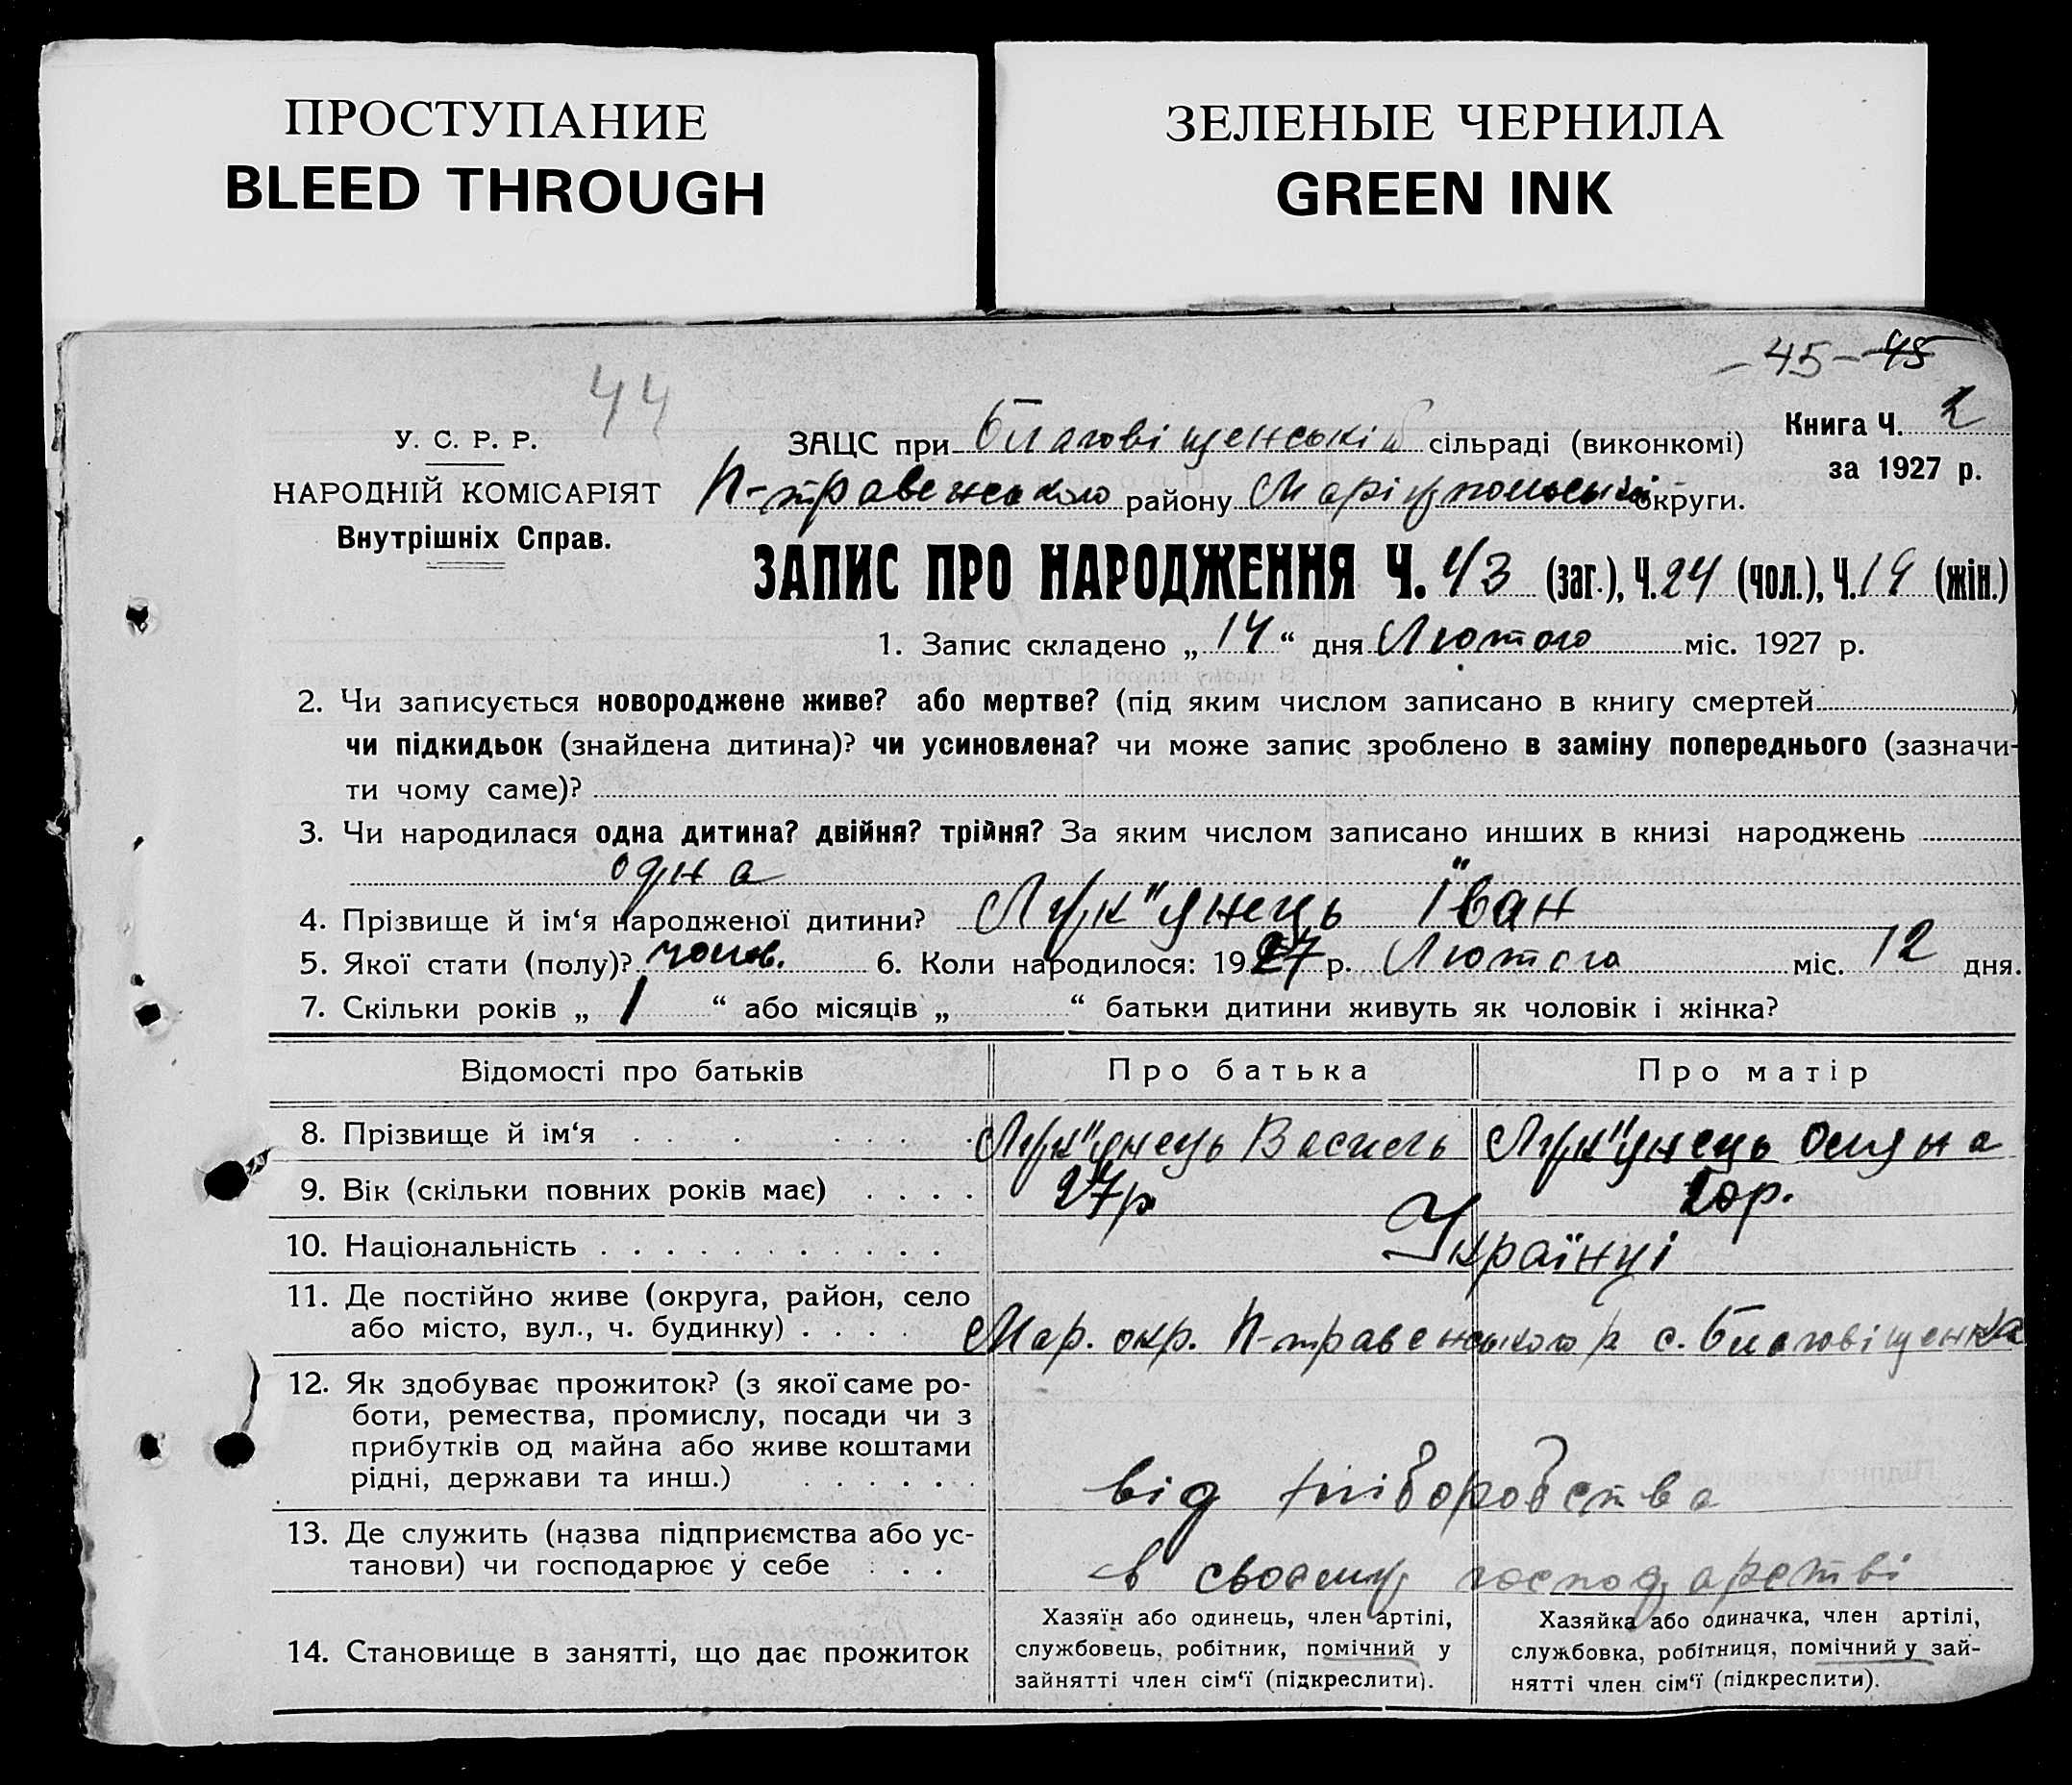 ПРОСТУПАНИЕ
BLEED THROUGH
ЗЕЛЕНЫЕ ЧЕРНИЛА
GREEN INK
- 45 - 45
44
У. С. Р. Р.
НАРОДНІЙ КОМІСАРІЯТ
Внутрішніх Справ.
ЗАЦС при Благовіщенській сільраді (виконкомі)
П-травенського району Маріупольської округи.
Книга Ч. 2
за 1927 р.
ЗАПИС ПРО НАРОДЖЕННЯ Ч. 43 (заг.), Ч. 24 (чол.), Ч. 19 (жін.)
1. Запис складено „ 14 “ дня Лютого міс. 1927 р.
2. Чи записується новороджене живе? або мертве? (під яким числом записано в книгу смертей )
чи підкидьок (знайдена дитина)? чи усиновлена? чи може запис зроблено в заміну попереднього (зазначи-
ти чому саме)?
3. Чи народилася одна дитина? двійня? трійня? За яким числом записано инших в книзі народжень
одна
4. Прізвище й ім‘я народженої дитини? Лук"янець Іван
5. Якої стати (полу)? чолов. 6. Коли народилося: 1927 р. Лютого міс. 12 дня.
7. Скільки років „ 1 “ або місяців „ “ батьки дитини живуть як чоловік і жінка?
Відомості про батьків Про батька Про матір
8. Прізвище й ім‘я . . . . . . . Лук"янець Василь Лук"янець Оляна
9. Вік (скільки повних років має) . . . . 27р 20р.
10. Національність . . . . . . . . . . . Українці
11. Де постійно живе (округа, район, село
або місто, вул., ч. будинку) . . . . Мар. окр. П-травенського р с. Благовіщенка
12. Як здобуває прожиток? (з якої саме ро-
боти, ремества, промислу, посади чи з
прибутків од майна або живе коштами
рідні, держави та инш.) . . . . . . від хліборобства
13. Де служить (назва підприємства або ус-
танови) чи господарює у себе . . . в своєму господарстві
14. Становище в занятті, що дає прожиток
Хазяїн або одинець, член артілі,
службовець, робітник, помічний у
зайнятті член сім‘ї (підкреслити).
Хазяйка або одиначка, член артілі,
службовка, робітниця, помічний у зай-
нятті член сім‘ї (підкреслити).